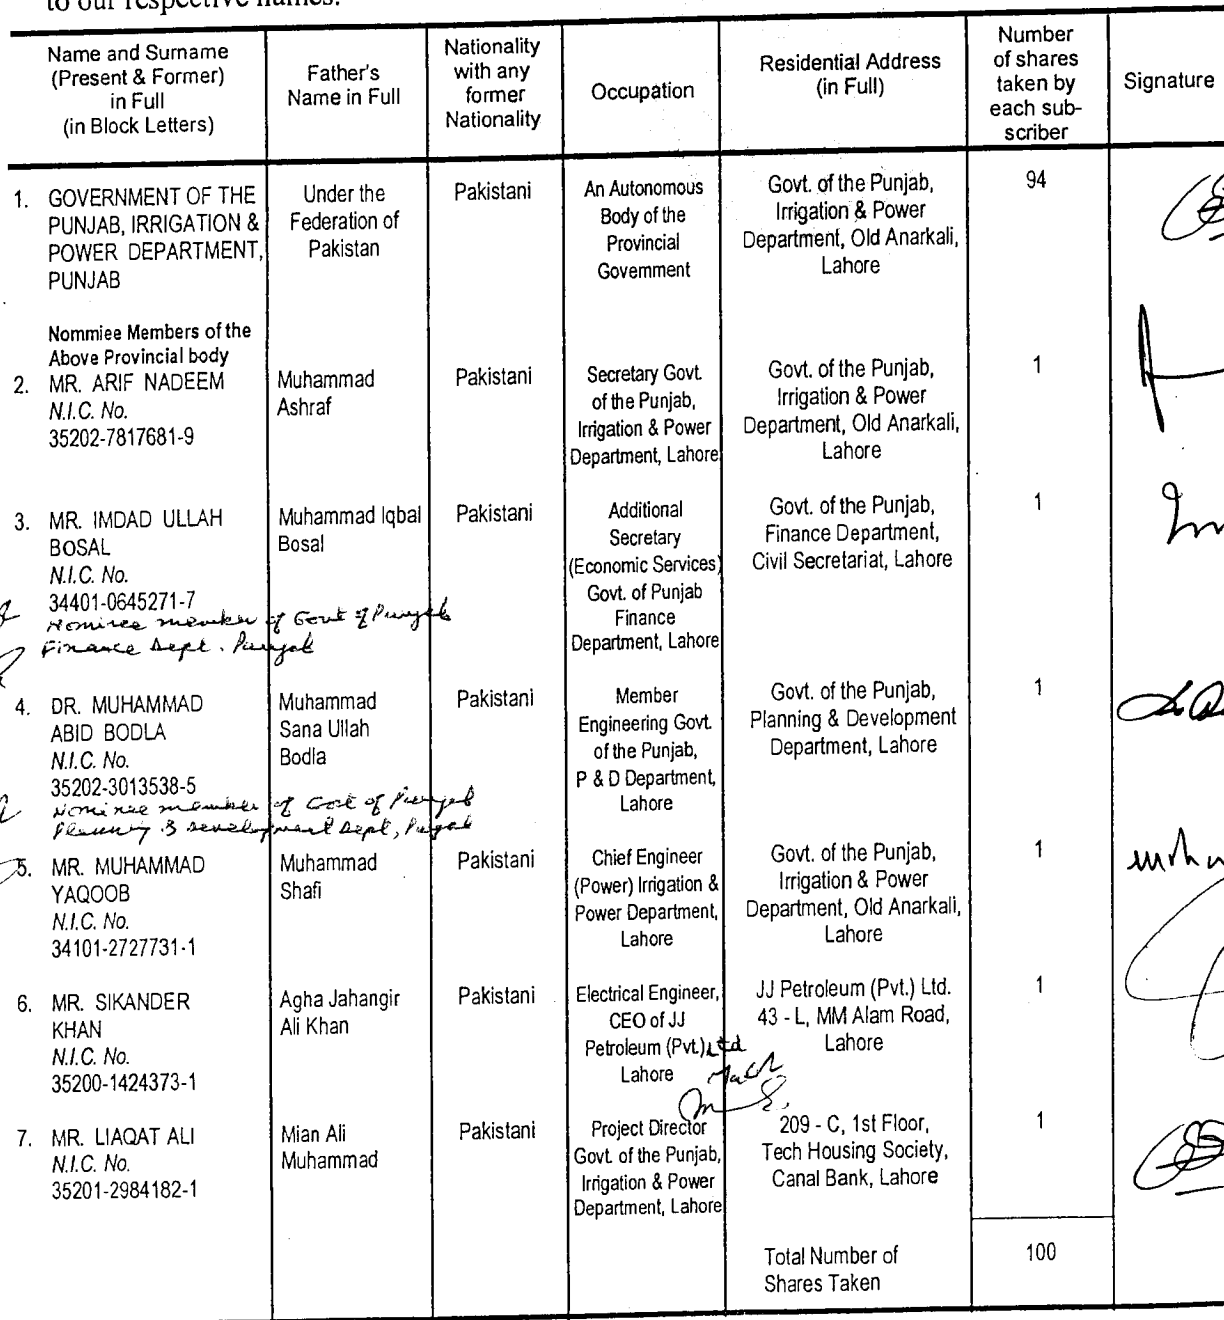 to our respective names.
Name and Surname
(Present & Former)
in Full
(in Block Letters)
Father's
Name in Full
Nationality
with any
former
Nationality
Occupation
Residential Address
(in Full)
Number
of shares
taken by
each sub-
scriber
Signature
1. GOVERNMENT OF THE
PUNJAB, IRRIGATION &
POWER DEPARTMENT,
PUNJAB
Under the
Federation of
Pakistan
Pakistani
An Autonomous
Body of the
Provincial
Government
Govt. of the Punjab,
Irrigation & Power
Department, Old Anarkali,
Lahore
94
Nommiee Members of the
Above Provincial body
2. MR. ARIF NADEEM
N.I.C. No.
35202-7817681-9
Muhammad
Ashraf
Pakistani
Secretary Govt.
of the Punjab,
Irrigation & Power
Department, Lahore
Govt. of the Punjab,
Irrigation & Power
Department, Old Anarkali,
Lahore
1
3. MR. IMDAD ULLAH
BOSAL
N.I.C. No.
34401-0645271-7
Nominee member of Govt of Punjab
Finance Dept. Punjab
Muhammad Iqbal
Bosal
Pakistani
Additional
Secretary
(Economic Services)
Govt. of Punjab
Finance
Department, Lahore
Govt. of the Punjab,
Finance Department,
Civil Secretariat, Lahore
1
4. DR. MUHAMMAD
ABID BODLA
N.I.C. No.
35202-3013538-5
Nominee member of Govt of Punjab
Planning & Development Dept, Punjab
Muhammad
Sana Ullah
Bodla
Pakistani
Member
Engineering Govt.
of the Punjab,
P & D Department,
Lahore
Govt. of the Punjab,
Planning & Development
Department, Lahore
1
5. MR. MUHAMMAD
YAQOOB
N.I.C. No.
34101-2727731-1
Muhammad
Shafi
Pakistani
Chief Engineer
(Power) Irrigation &
Power Department,
Lahore
Govt. of the Punjab,
Irrigation & Power
Department, Old Anarkali,
Lahore
1
6. MR. SIKANDER
KHAN
N.I.C. No.
35200-1424373-1
Agha Jahangir
Ali Khan
Pakistani
Electrical Engineer,
CEO of JJ
Petroleum (Pvt.) Ltd
Lahore
JJ Petroleum (Pvt.) Ltd.
43 - L, MM Alam Road,
Lahore
1
7. MR. LIAQAT ALI
N.I.C. No.
35201-2984182-1
Mian Ali
Muhammad
Pakistani
Project Director
Govt. of the Punjab,
Irrigation & Power
Department, Lahore
209 - C, 1st Floor,
Tech Housing Society,
Canal Bank, Lahore
1
Total Number of
Shares Taken
100